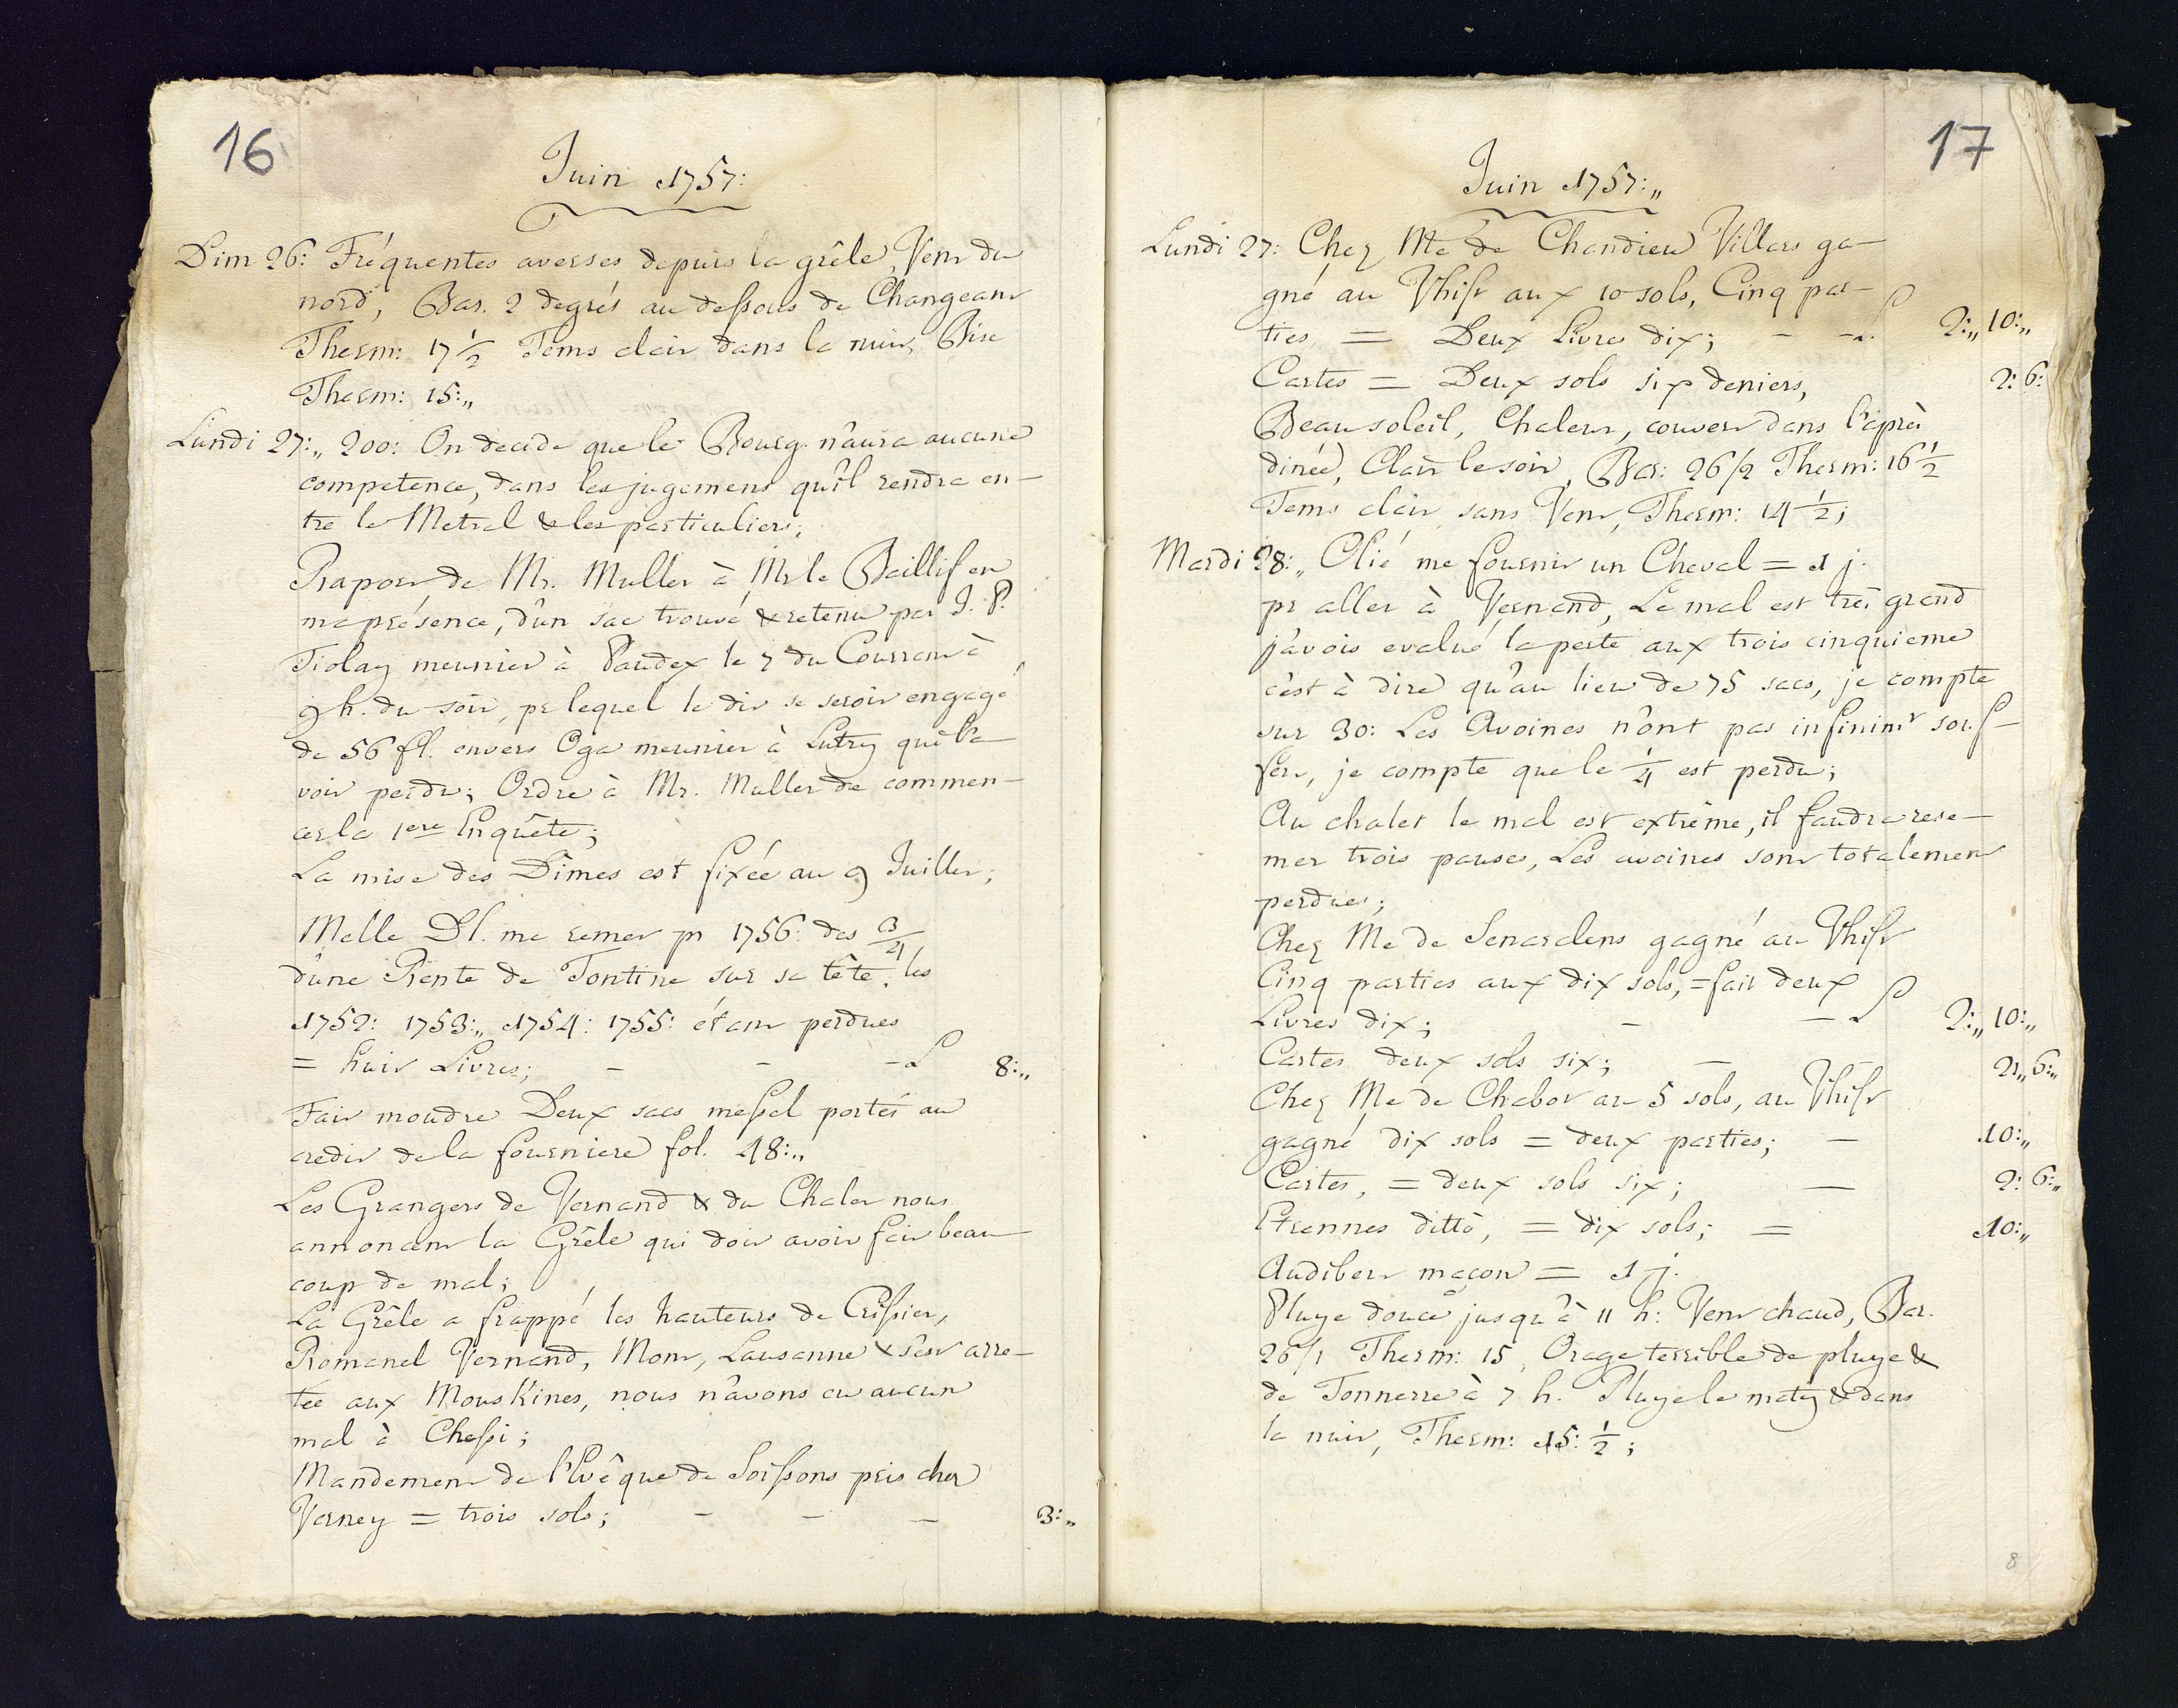 16
Juin 1757:
Dim 26: Fréquentes averses depuis la grêle, Vent du
nord, Bar. 2 degrés au dessous de Changeant
Therm: 17 1/2 Tems clair dans la nuit, Bise
Therm: 15:,,
Lundi 27:,, 200: On decide que le Bourg n'aura aucune
competence, dans les jugemens qu'il rendra en-
tre le Metral & les particuliers;
Raport de Mr. Muller à Mr le Baillif en
ma présence, d'un sac trouvé & retenu par J. P.
Tiolay meunier à Paudex le 7 du Courrant à
9 h. du soir, pr lequel le dit se seroit engagé
de 56 fl. envers Oga meunier à Lutry qui l'a-
voit perdu; Ordre à Mr. Muller de commen-
cer la 1ere Enquête;
La mise des Dîmes est fixée au 9 Juillet;
Melle Dl. me remet pr 1756: des 3/4
d'une Rente de Tontine sur sa tête, les
1752: 1753:,, 1754: 1755: étant perdues
= huit Livres; - - - L 8:,,
Fait moudre Deux sacs messel portés au
credit de la fourniere fol. 48:,,
Les Grangers de Vernand & du Chalet nous
annoncent la Grêle qui doit avoir fait beau-
coup de mal;
La Grêle a frappé les hauteurs de Crissier,
Romanel Vernand, Mont, Lausanne & s'est arre-
tée aux Mouskines, nous n'avons eu aucun
mal à Chessi;
Mandement de l'Evêque de Soissons pris chez
Verney = trois sols; - - - 3:,,
17
Juin 1757:,,
Lundi 27: Chez Me de Chandieu Villars ga-
gné au Vhist aux 10 sols, Cinq par-
ties = Deux Livres dix; - - L 2:,, 10:,,
Cartes = Deux sols six deniers, 2: 6:
Beau soleil, Chaleur, couvert dans l'après
dinée, Clair le soir, Bar: 26/2 Therm: 16 1/2
Tems clair sans Vent, Therm: 14 1/2;
Mardi 28:,, Olié me fournit un Cheval = 1 j.
pr aller à Vernand, Le mal est très grand
j'avois evalué la perte aux trois cinquieme
c'est à dire qu'au lieu de 75 sacs, je compte
sur 30: Les Avoines n'ont pas infinimt souf-
fert, je compte que le 1/4 est perdu;
Au chalet le mal est extrême, il faudra rese-
mer trois pauses, Les avoines sont totalement
perdues;
Chez Me de Senarclens gagné au Vhist
Cinq parties aux dix sols, = fait deux
Livres dix; - - L 2:,, 10:,,
Cartes deux sols six; - 2,, 6:,,
Chez Me de Chabot au 5 sols, au Vhist
gagné dix sols = deux parties; - 10:,,
Cartes, = deux sols six; - 2: 6:,,
Etrennes dittò, = dix sols; = 10:,,
Audibert maçon = 1 j.
Pluye douce jusqu'à 11 h: Vent chaud, Bar.
26/1 Therm: 15, Orage terrible de pluye &
de Tonnerre à 7 h. Pluye le matin & dans
la nuit, Therm: 15: 1/2;
8